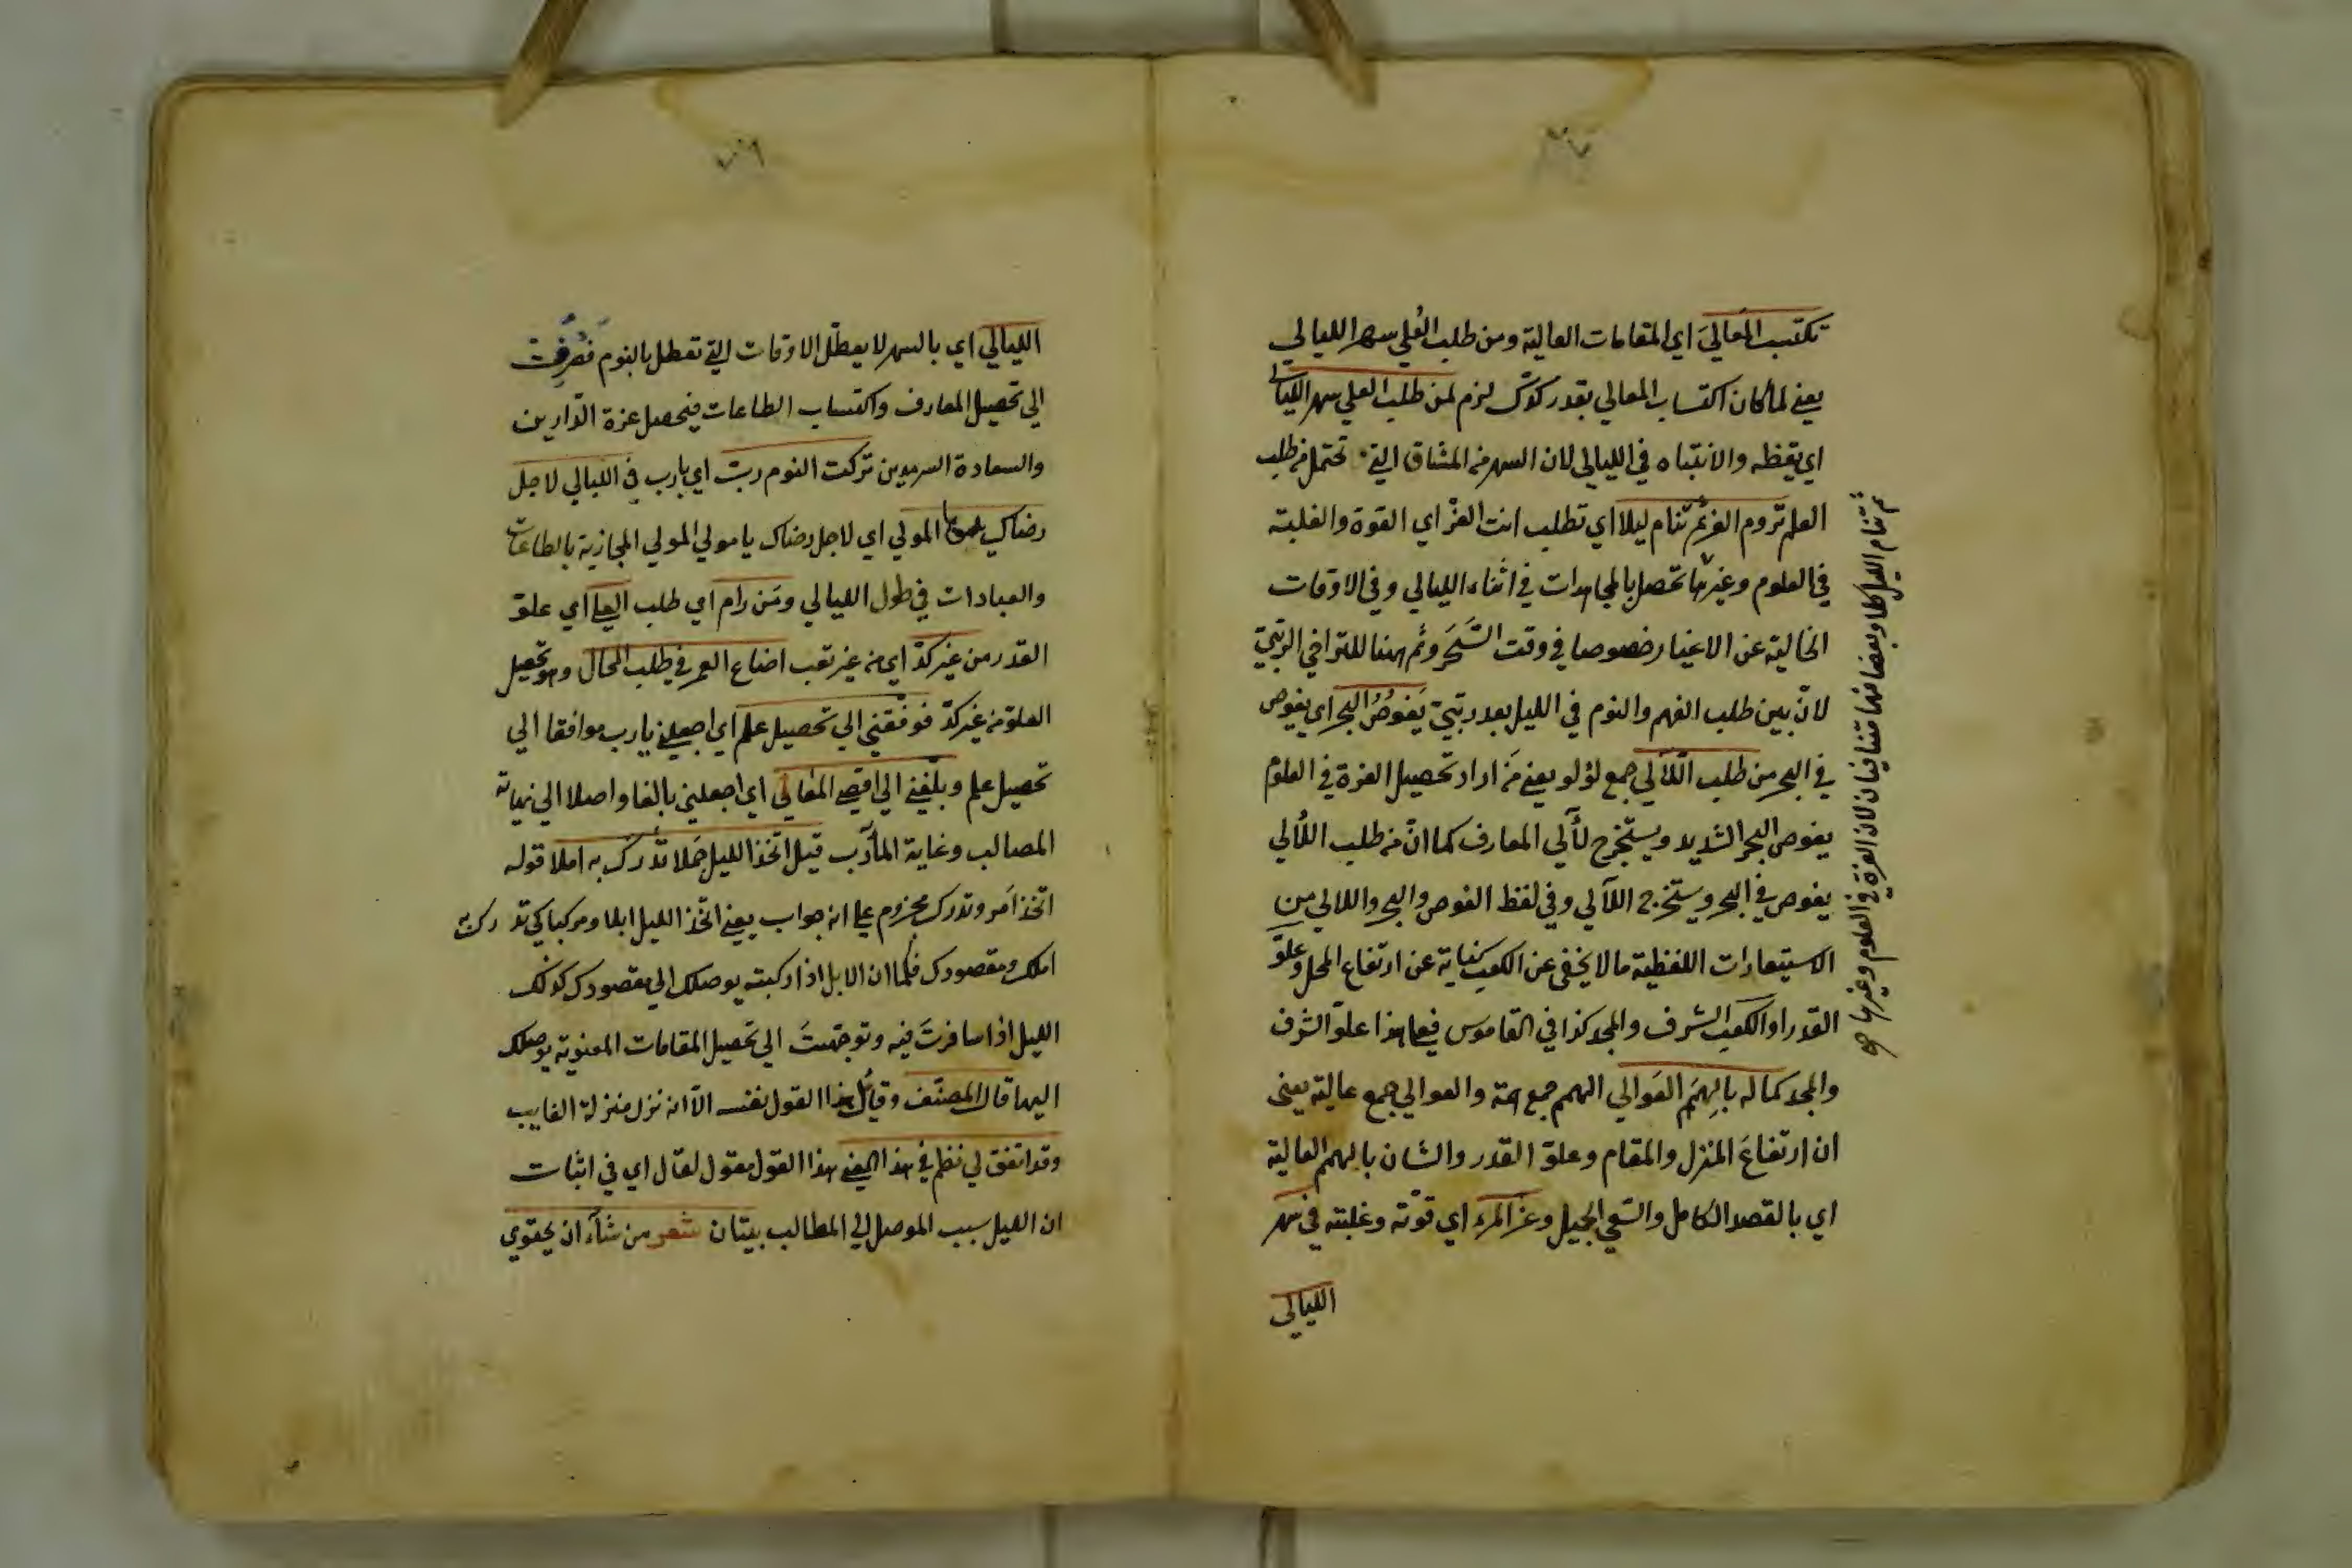 تكتسب المعالي اي المقامات العالية ومن طلب العُلي سهر الليالي
يعني لما كان اكتساب المعالي بقدر كدّك لزم لمن طلب العلي سهر الليالي
اي يقظه والانتباه في الليالي لان السهر من المشاق التي تحتمل في طلب
العلم تروم العز ثم تنام ليلا اي تطلب انت العزّ اي القوة والغلبة
في العلوم وغيرها تحصل بالمجاهدات في اثناء الليالي وفي الاوقات
الخالية عن الاغيار خصوصا في وقت السَّحَر وثم ههنا للتراخي الرتبيّ
لانّ بين طلب الفهم والنوم في الليل بعد رتبيّ يَغوصُ البحر اي يغوص
في البحر من طلب اللآلي جمع لؤلو يعني من اراد تحصيل العزة في العلوم
يغوص البحر الشديد ويستخرج لآلي المعارف كما انّ من طلب اللآلي
يغوص في البحر ويستخرج اللآلي وفي لفظ الغوص والبحر واللالي من
الاستعارات اللفظية مالا يخفى عن الكعب كناية عن ارتفاع المحل وعلوّ
القدر او الكعب الشرف والمجد كذا في القاموس فعلى هذا علوّ الشرف
والمجد كماله بالهِمَم العَوالي الهمم جمع همة والعوالي جمع عالية يعنى
ان ارتفاعَ المنزل والمقام وعلوّ القدر والشان بالهمم العالية
اي بالقصد الكامل والسّعي الجميل وعزّ المرء اي قوّته وغلبته في سهر
الليالى
ثم تنام الليل كلا وبعضا فهما متنافيان لان العزة في العلوم وغيرها صح
٢٠٦
الليالي اي بالسهر لا يعطّل الاوقات التي تعطل بالنوم فصُرِفت
الي تحصيل المعارف واكتساب الطاعات فيحصل عزة الدّارين
والسعادة السرمدين تركت النوم ربّ اي يارب في الليالي لاجل
رضاك يا مولي المولي اي لاجل رضاك يا مولي المولي المجازية بالطاعات
والعبادات في طول الليالي ومَن رام اي طلب العلي اي علوّ
القدر من غير كدّ اي من غير تعب اضاع العمر في طلب المحال وهو تحصيل
العلوّ من غير كدّ فوفّقني الي تحصيل علم اي اجعلني يارب موافقا الي
تحصيل علم وبلّغني الي اقصي المعالي اي اجعلني بالغا واصلا الي نهاية
المصالب وغاية المأرب قيل اتخذ الليل جَملا تدرك به املا قوله
اتخذ امَر وتدرك مجزوم علي انه جواب يعني اتخّذ الليل ابلا ومركبا كي تدرك به
املك ومقصودك فكما ان الابل اذا ركبته يوصلك الي مقصودك كذلك
الليل اذا سافرتَ فيه وتوجّهتَ الي تحصيل المقامات المعنوية يوصلك
اليها قال المصنّف وقائل هذا القول نفسه الّا انه نزل منزلة الغايب
وقد اتفق لي نظم في هذا المعني هذا القول مقول لقال اي في اثبات
ان الليل سبب الموصل الي المطالب بيتان شعر من شآء ان يحتوي